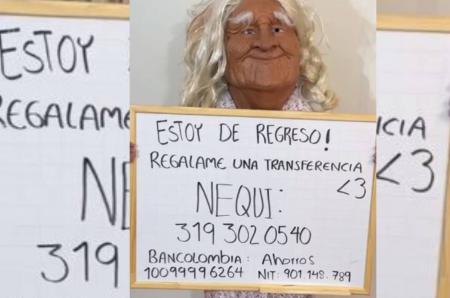 ESTOY DE REGRESO!
REGALAME UNA TRANSFERENCIA
<3
NEQUI:
319 302 0540
BANCOLOMBIA: Ahorros
10099996264 NIT: 901.148.789
ESTOY
REGALAME
NE
319
CIA
<3